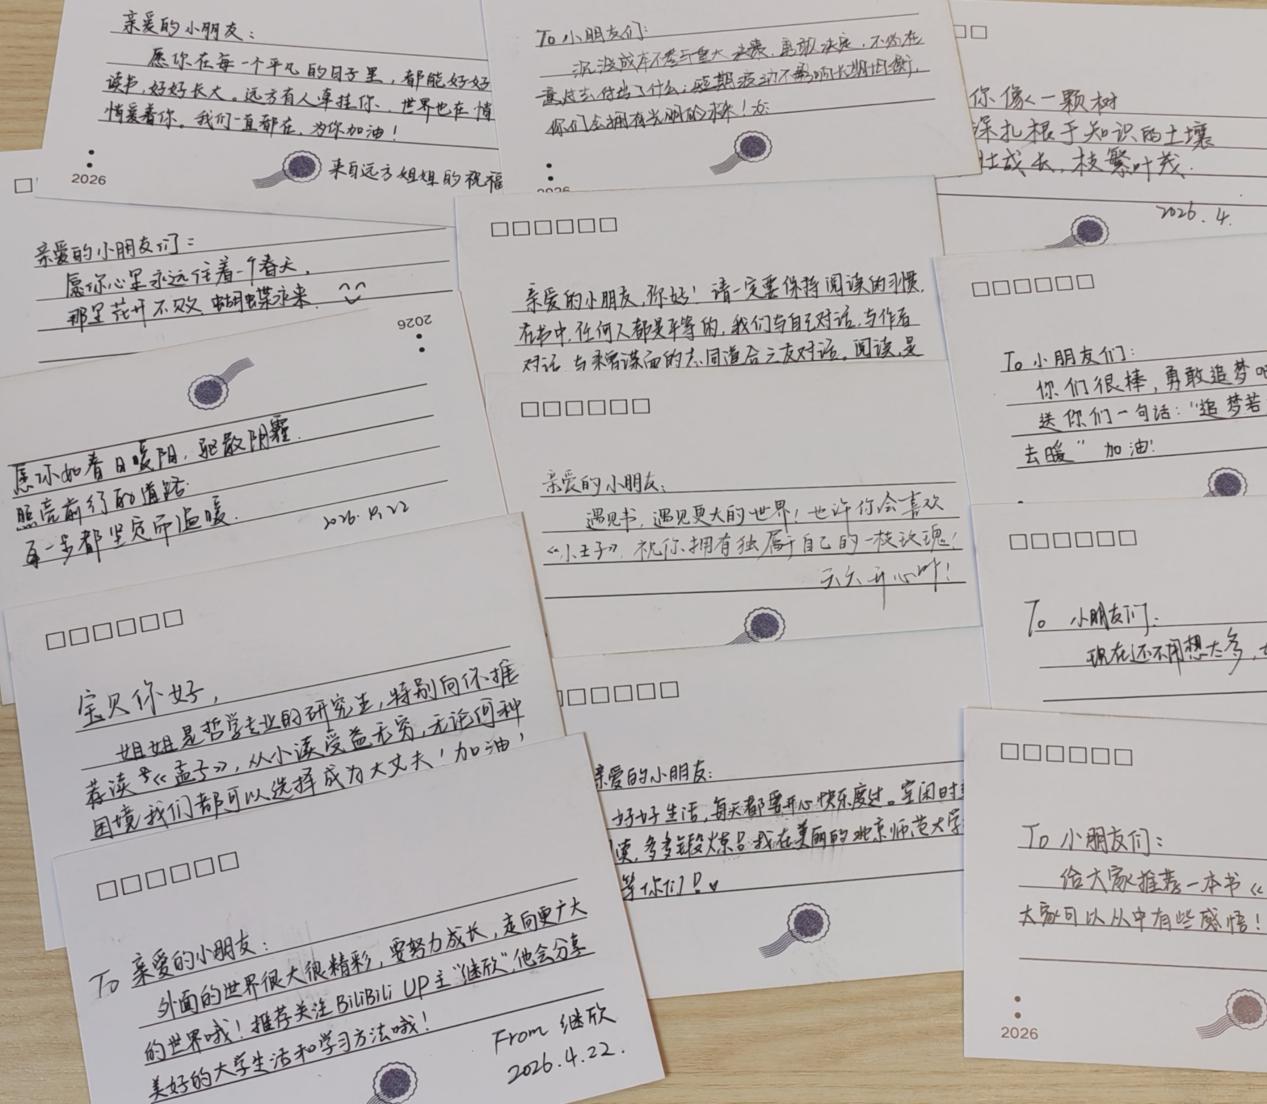 亲爱的小朋友：
愿你在每一个平凡的日子里，都能好好
读书，好好长大。远方有人牵挂你、世界也在悄
悄爱着你。我们一直都在，为你加油！
来自远方姐姐的祝福
2026
To 小朋友们：
沉没成本不参与重大决策，勇敢决定，不必在
意过去付出了什么；短期波动不影响长期均衡，
你们会拥有光明的未来！
2026
你像一颗树
深扎根于知识的土壤
壮成长，枝繁叶茂.
2026.4.
亲爱的小朋友们：
愿你心里永远住着一个春天，
那里花开不败 蝴蝶永来.
2026
愿你如春日暖阳，驱散阴霾.
照亮前行的道路
每一步都坚定而温暖.
2026.4.22
亲爱的小朋友，你好！请一定要保持阅读的习惯，
在书中，任何人都是平等的，我们与自己对话，与作者
对话，与素昧谋面的志同道合之友对话。阅读，是
To 小朋友们：
你们很棒，勇敢追梦吧
送你们一句话：“追梦若
去暖”加油！
亲爱的小朋友：
遇见书，遇见更大的世界！也许你会喜欢
《小王子》，祝你拥有独属于自己的一枝玫瑰！
天天开心吖！
To 小朋友们：
现在还不用想太多，
宝贝你好，
姐姐是哲学专业的研究生，特别向你推
荐读《孟子》，从小读受益无穷，无论何种
困境我们都可以选择成为大丈夫！加油！
亲爱的小朋友：
好好生活，每天都要开心快乐度过。空闲时
读，多多锻炼 我在美丽的北京师范大学
等你们！
To 小朋友们：
给大家推荐一本书《
大家可以从中有些感悟！
2026
To 亲爱的小朋友：
外面的世界很大很精彩，要努力成长，走向更广大
的世界哦！推荐关注BiliBili UP主“继欣”，他会分享
美好的大学生活和学习方法哦！
From 继欣
2026.4.22.